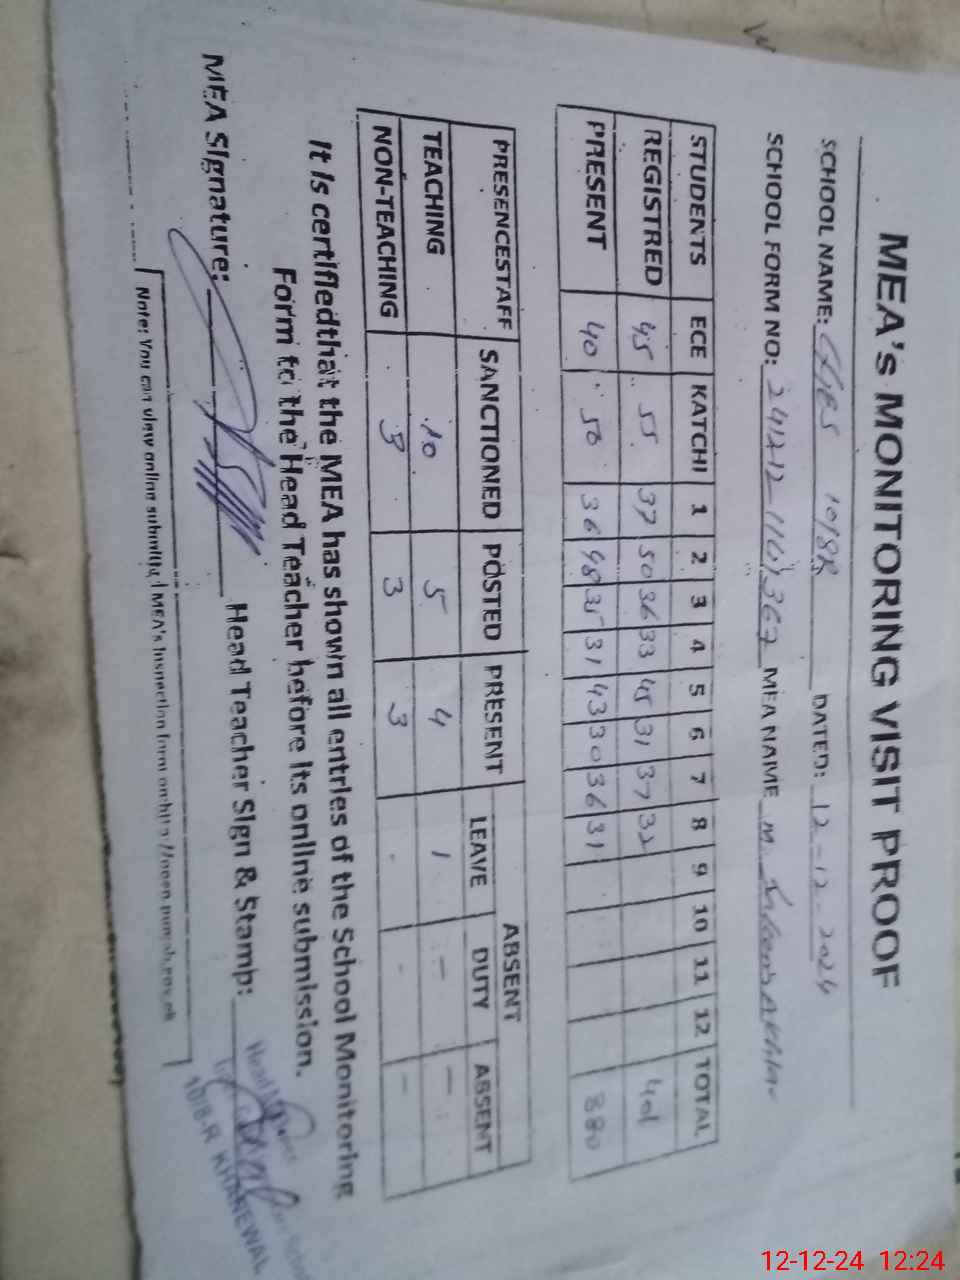 MEA's MONITORING VISIT PROOF
SCHOOL NAME: 10/8R DATED: 12-12-2024
SCHOOL FORM NO: MEA NAME M.
STUDENTS ECE KATCHI 1 2 3 4 5 6 7 8 9 10 11 12 TOTAL
REGISTRED 45 55 37 50 36 33 45 31 37 32 401
PRESENT 40 50 36 48 35 31 43 30 36 31 380
PRESENCESTAFF SANCTIONED POSTED PRESENT ABSENT
LEAVE DUTY ABSENT
TEACHING 10 5 4 1 - -
NON-TEACHING 3 3 3 - - -
It is certifiedthat the MEA has shown all entries of the School Monitoring
Form to the Head Teacher before its online submission.
MEA Signature: Head Teacher Sign & Stamp:
Head
10/8.R KHANEWAL
Note: You can view online submitted MEA's Inspection form on
12-12-24 12:24